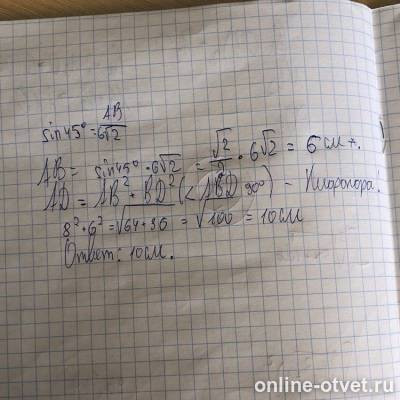 sin45° = AB/6√2
AB = sin45° · 6√2 = √2/2 · 6√2 = 6 см
AD = AB² + BD² (<ABD 90°) -
8² + 6² = √64+36 = √100 = 10см
Ответ: 10см.
online-otvet.ru